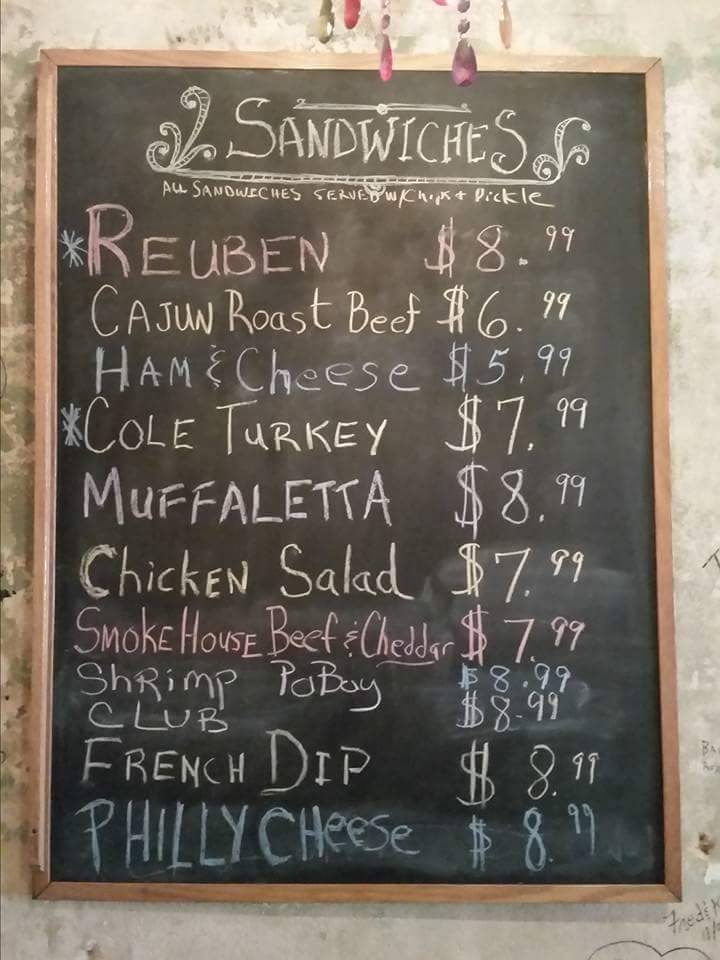 SANDWICHES
ALL SANDWICHES SERVED W/Chips + Pickle
*REUBEN $8.99
CAJUN Roast Beef $6.99
HAM & Cheese $5.99
*COLE TURKEY $7.99
MUFFALETTA $8.99
Chicken Salad $7.99
SMOKEHOUSE Beef & Cheddar $7.99
Shrimp PoBoy $8.99
CLUB $8.99
FRENCH DIP $8.99
PHILLY CHeese $8.99